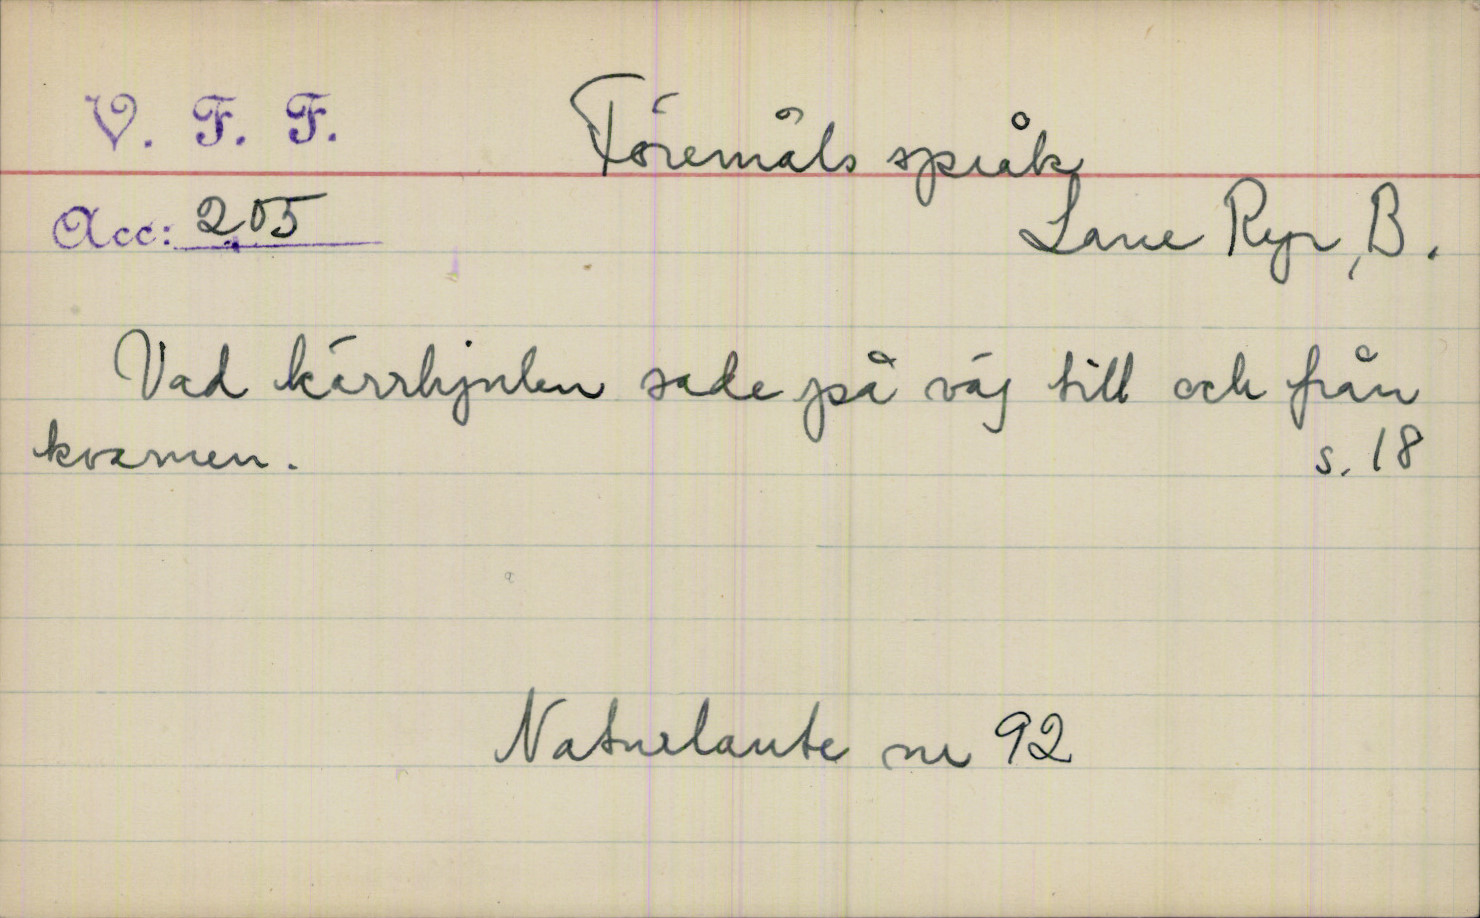 V. F. F.
Föremåls språk
Acc: 205
Lane Ryr, B.
Vad kärrhjulen sade på väg till och från
kvarnen.
s. 18
Naturlaute nr 92